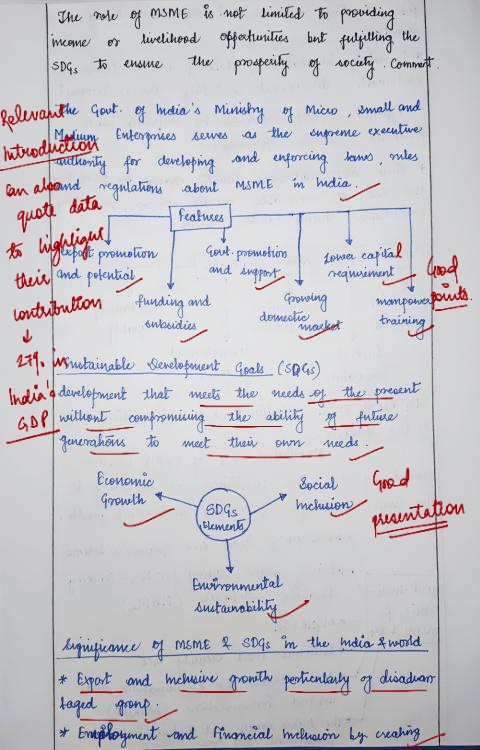 The role of MSME is not limited to providing
income or livelihood opportunities but fulfilling the
SDGs to ensure the prosperity of society. Comment.
The Govt. of India's Ministry of Micro, Small and
Medium Enterprises serves as the supreme executive
authority for developing and enforcing laws, rules
and regulations about MSME in India.
Relevant
Introduction
can also
quote data
to highlight
their
contribution
↓
27% in
India's
GDP
Features
Export promotion
and potential
funding and
subsidies
Govt. promotion
and support
Growing
domestic
market
Lower capital
requirement
manpower
training
Good
points.
Sustainable Development Goals (SDGs)
development that meets the needs of the present
without compromising the ability of future
generations to meet their own needs.
Economic
Growth
Social
Inclusion
SDGs
Elements
Environmental
sustainability
Good
presentation
Significance of MSME & SDGs in the India & world
* Export and Inclusive growth particularly of disadvan
taged group.
* Employment and Financial Inclusion by creating